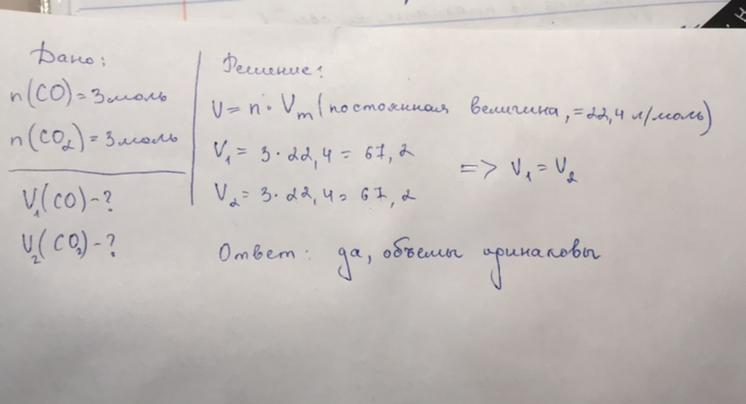 Дано:
n(CO) = 3 моль
n(CO₂) = 3 моль
V₁(CO) - ?
V₂(CO₂) - ?
Решение:
V = n · Vm (постоянная величина, = 22,4 л/моль)
V₁ = 3 · 22,4 = 67,2
V₂ = 3 · 22,4 = 67,2
=> V₁ = V₂
Ответ: да, объемы одинаковы